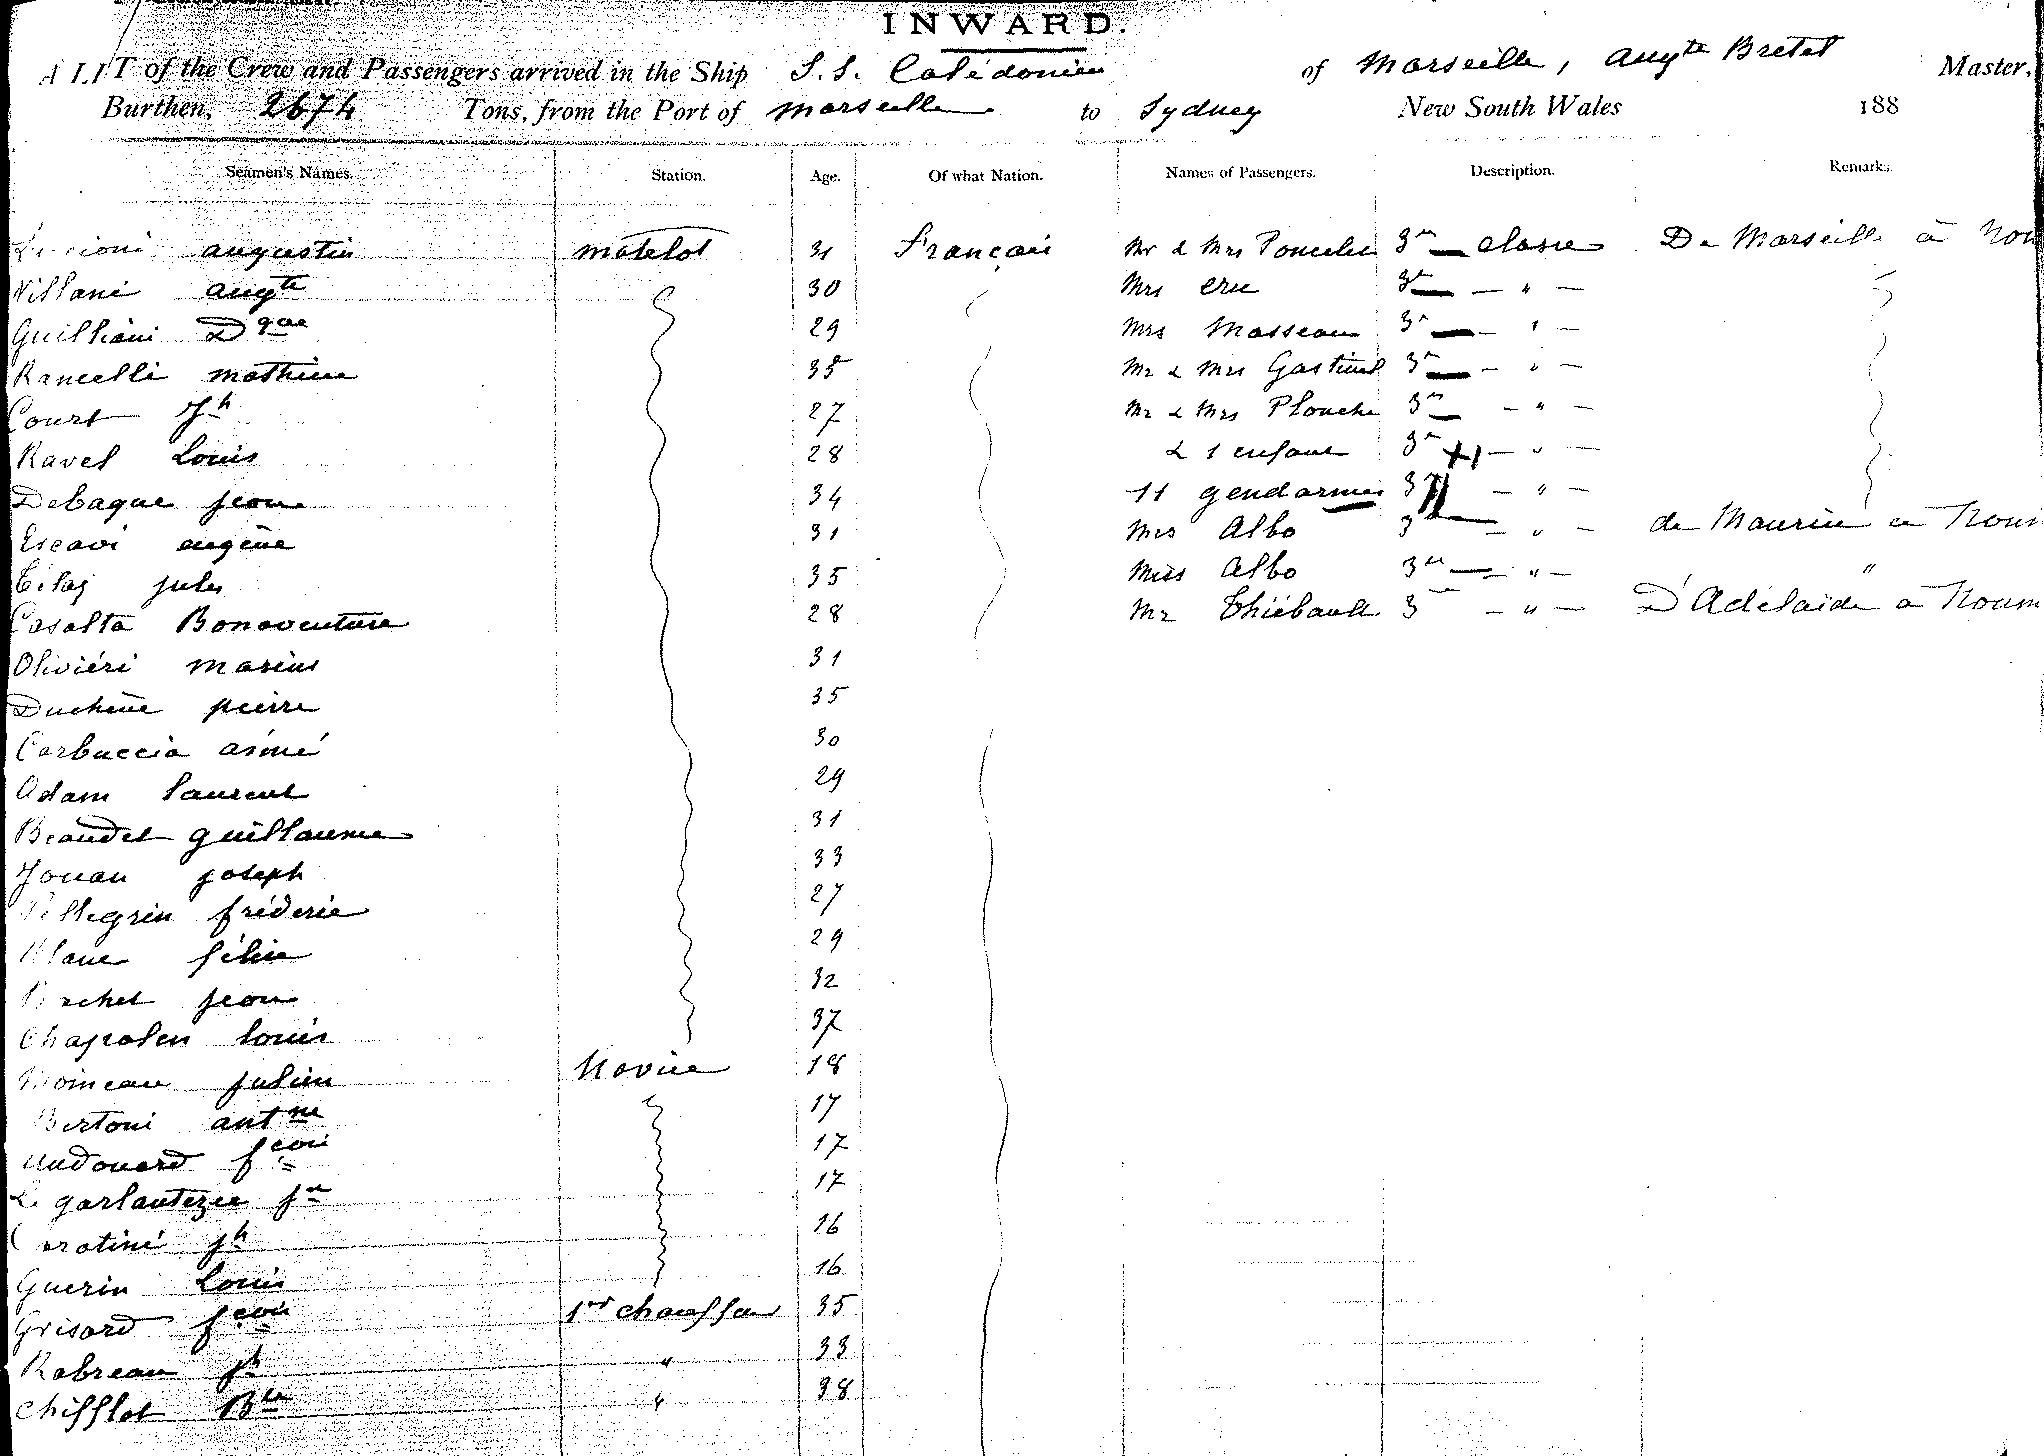 INWARD.
A LIST of the Crew and Passengers arrived in the Ship S.S. Calédonien of Marseille, Augte Bretel Master,
Burthen, 2674 Tons, from the Port of Marseille to Sydney New South Wales 188
Seamen's Names. Station. Age. Of what Nation. Names of Passengers. Description. Remarks.
augustin matelot 31 Français Mr & Mrs 3me classe De Marseille à Nou
Villani augte 30 Mrs 3me — " —
Guilliani Dque 29 Mrs Masseau 3me — " —
Rancelli mathieu 35 Mr & Mrs Gastinel 3me — " —
Court Jh 27 Mr & Mrs Plouche 3me — " —
Ravel Louis 28 & 1 enfant 3me — " —
Debaque jean 34 11 gendarmes 3me — " —
Escavi eugène 31 Mrs Albo 3 — " — de Maurice à Noum
jules 35 Miss Albo 3me — " — "
Casalta Bonaventure 28 Mr Thiébault 3me — " — D'Adélaïde à Noum
Oliviéri marius 31
Duchêne pierre 35
Carbuccia aimé 30
Adam laurent 29
Beaudet guillaume 31
Jouan joseph 33
Pellegrin fréderic 27
Blanc félix 29
jean 32
Chapelen louis 37
Moineau julien Novice 18
Bertoni antne 17
Audouard fcois 17
Le fs 17
jh 16
Guerin Louis 16
Grisard fcois 1er chauffeur 35
Rabreau jh " 33
Chifflot Bte " 38